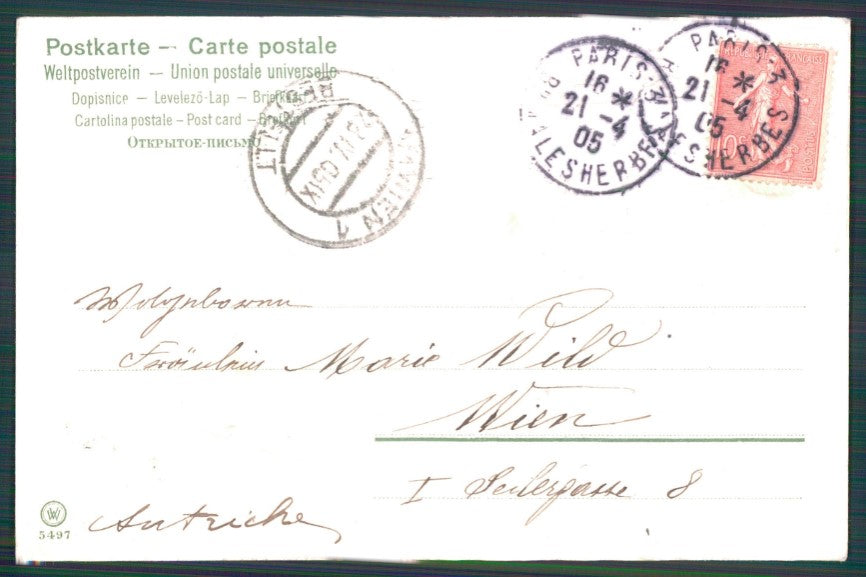 Postkarte — Carte postale
Weltpostverein — Union postale universelle
Dopisnice — Levelező-Lap — Briefkaart
Cartolina postale - Post card - Brefkort
ОТКРЫТОЕ-ПИСЬМО
PARIS-3
16 *
21 -4
05
BD MALESHERBES
PARIS-3
16 *
21 -4
05
MALESHERBES
REPUBLIQUE FRANÇAISE
10
WIEN 1
BESTELLT
Wohlgeboren
Fräulein Marie Wild
Wien
I Seilergasse 8
Autriche
W
5497